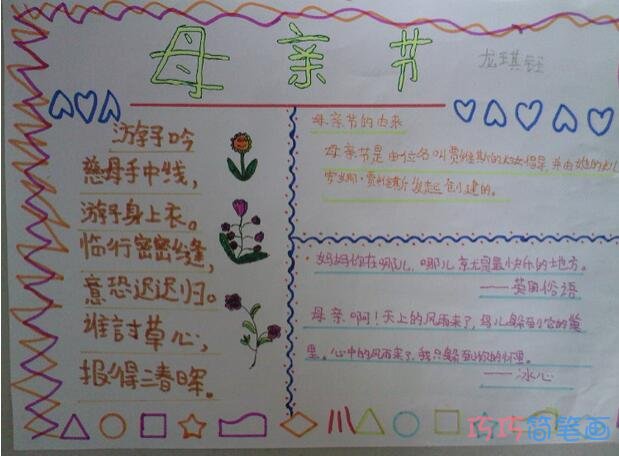 母亲节
龙琪钰
游子吟
慈母手中线,
游子身上衣。
临行密密缝,
意恐迟迟归。
谁討草心,
报得三春晖。
母亲节的由来
母亲节是由位名叫贾维斯的倡导,并由她的女儿
安娜·贾维斯发起创建的。
妈妈你在哪儿,哪儿就是最快乐的地方。
——英国俗语
母亲啊!天上的风雨来了,鸟儿躲到它的巢
里。心中的风雨来了,我只躲到你的怀里。
——冰心
巧巧简笔画